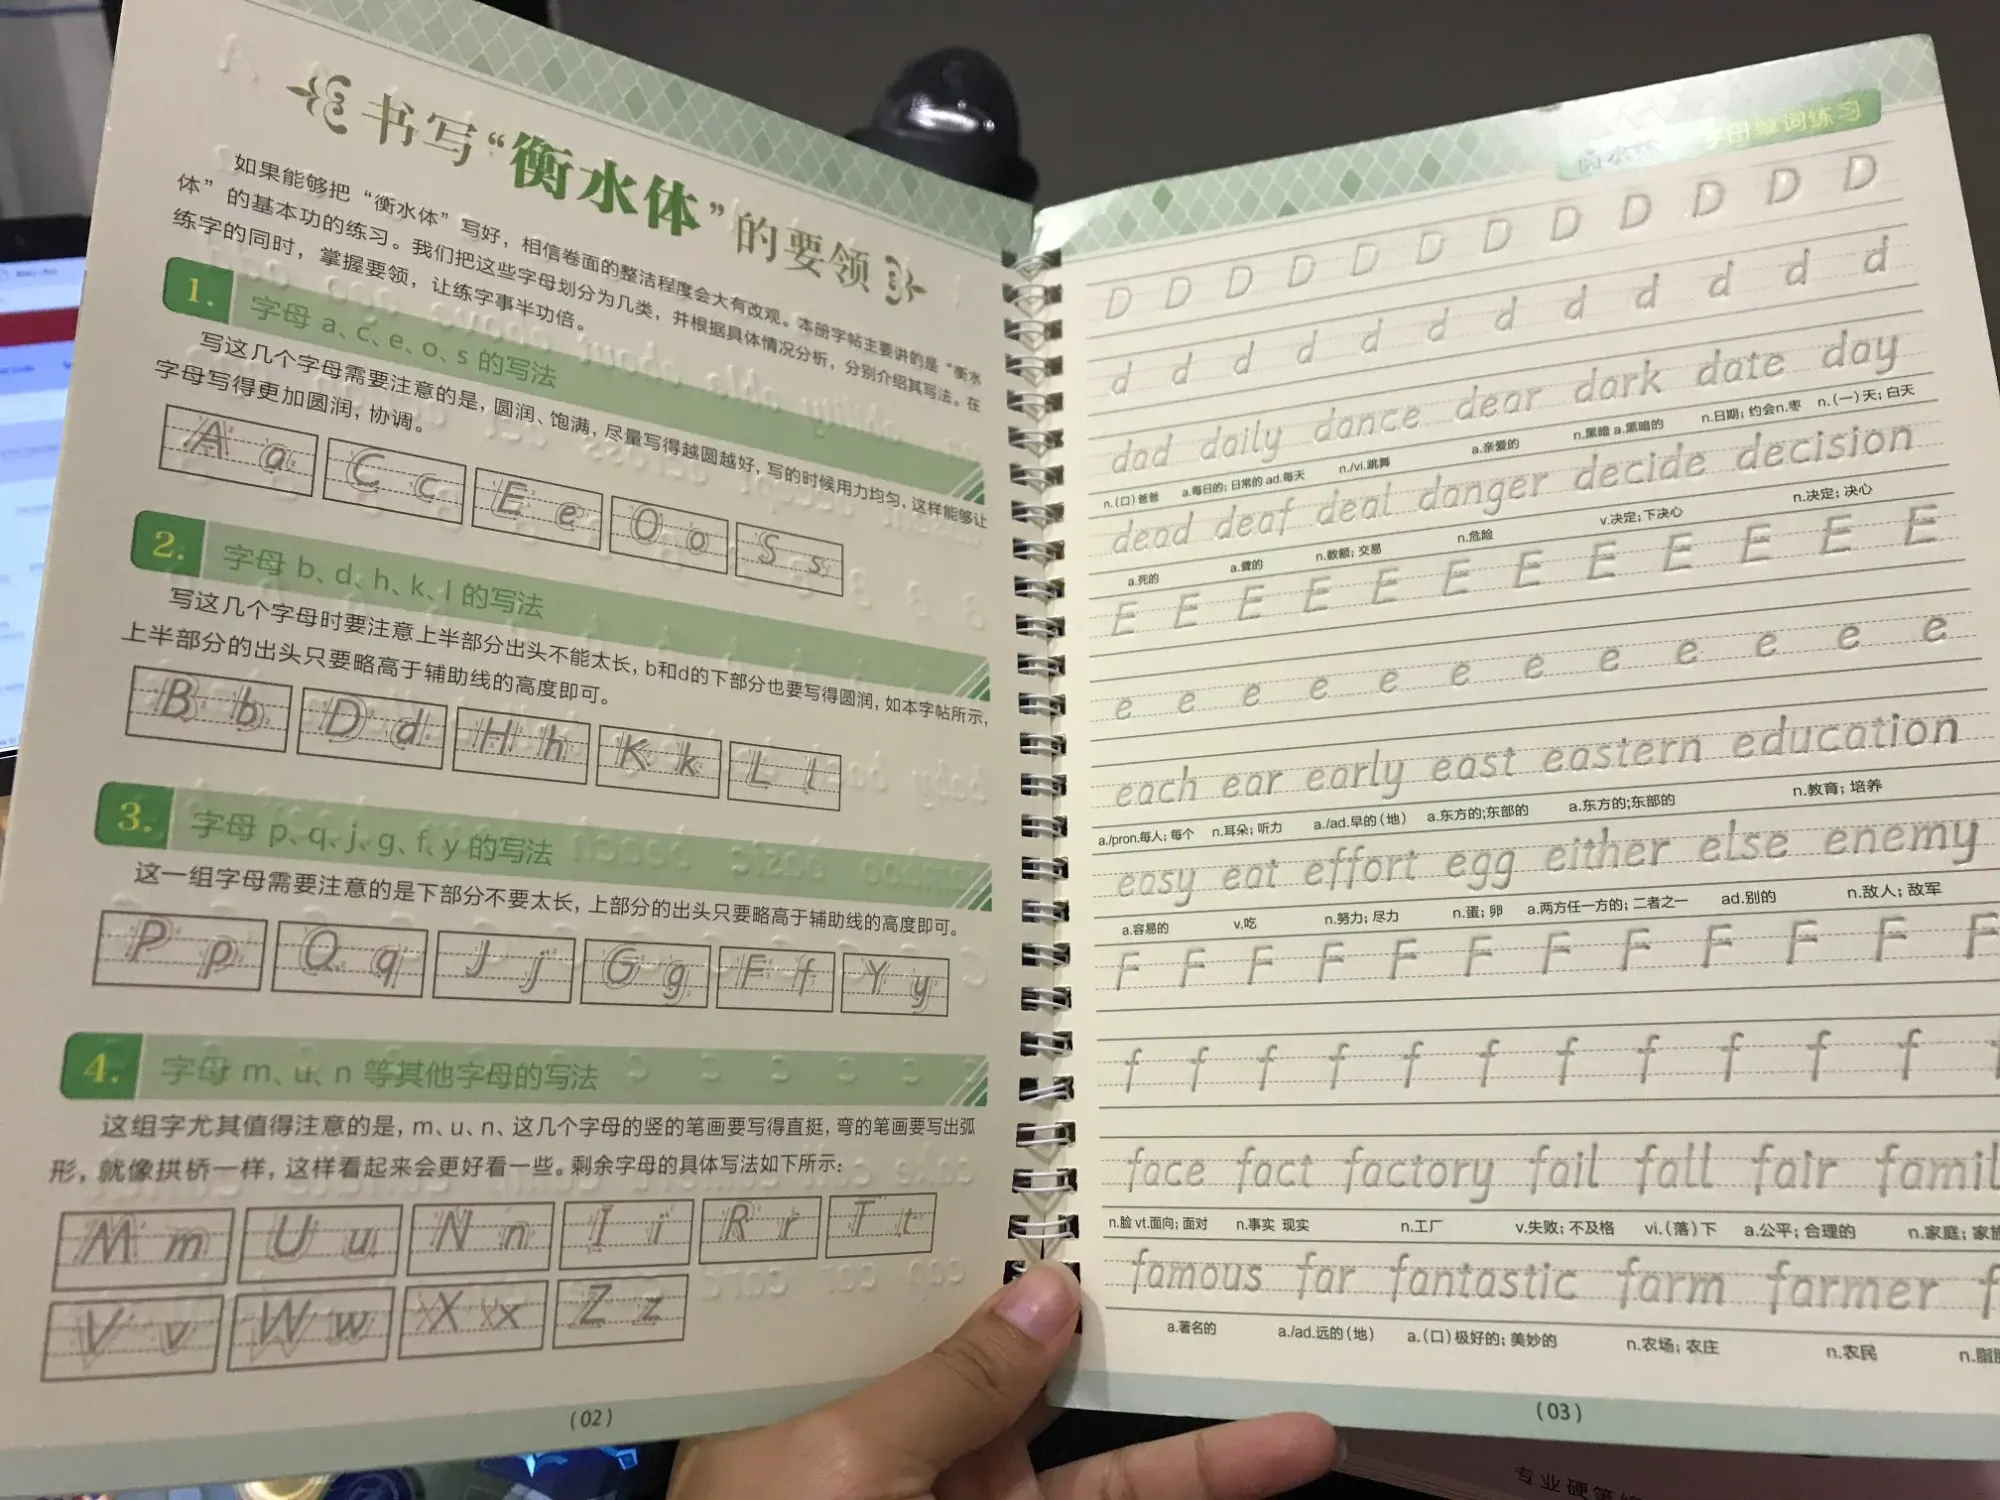 书写“衡水体”的要领
如果能够把“衡水体”写好，相信卷面的整洁程度会大有改观。本册字帖主要讲的是“衡水
体”的基本功的练习。我们把这些字母划分为几类，并根据具体情况分析，分别介绍其写法。在
练字的同时，掌握要领，让练字事半功倍。
1. 字母 a、c、e、o、s 的写法
写这几个字母需要注意的是，圆润、饱满，尽量写得越圆越好，写的时候用力均匀，这样能够让
字母写得更加圆润，协调。
A a C c E e O o S s
2. 字母 b、d、h、k、l 的写法
写这几个字母时要注意上半部分出头不能太长，b和d的下部分也要写得圆润，如本字帖所示，
上半部分的出头只要略高于辅助线的高度即可。
B b D d H h K k L l
3. 字母 p、q、j、g、f、y 的写法
这一组字母需要注意的是下部分不要太长，上部分的出头只要略高于辅助线的高度即可。
P p Q q J j G g F f Y y
4. 字母 m、u、n 等其他字母的写法
这组字尤其值得注意的是，m、u、n、这几个字母的竖的笔画要写得直挺，弯的笔画要写出弧
形，就像拱桥一样，这样看起来会更好看一些。剩余字母的具体写法如下所示：
M m U u N n I i R r T t
V v W w X x Z z
(02)
衡水体 字母单词练习
D D D D D D D D D D D D
d d d d d d d d d d d d
dad daily dance dear dark date day
n.(口)爸爸 a.每日的；日常的 ad.每天 n./vi.跳舞 a.亲爱的 n.黑暗 a.黑暗的 n.日期；约会n.枣 n.(一)天；白天
dead deaf deal danger decide decision
a.死的 a.聋的 n.数额；交易 n.危险 v.决定；下决心 n.决定；决心
E E E E E E E E E E E E
e e e e e e e e e e e e
each ear early east eastern education
a./pron.每人；每个 n.耳朵；听力 a./ad.早的(地) a.东方的;东部的 a.东方的;东部的 n.教育；培养
easy eat effort egg either else enemy
a.容易的 v.吃 n.努力；尽力 n.蛋；卵 a.两方任一方的；二者之一 ad.别的 n.敌人；敌军
F F F F F F F F F F F F
f f f f f f f f f f f
face fact factory fail fall fair famil
n.脸 vt.面向；面对 n.事实 现实 n.工厂 v.失败；不及格 vi.(落)下 a.公平；合理的 n.家庭；家族
famous far fantastic farm farmer f
a.著名的 a./ad.远的(地) a.(口)极好的；美妙的 n.农场；农庄 n.农民 n.脂
(03)
专业硬笔